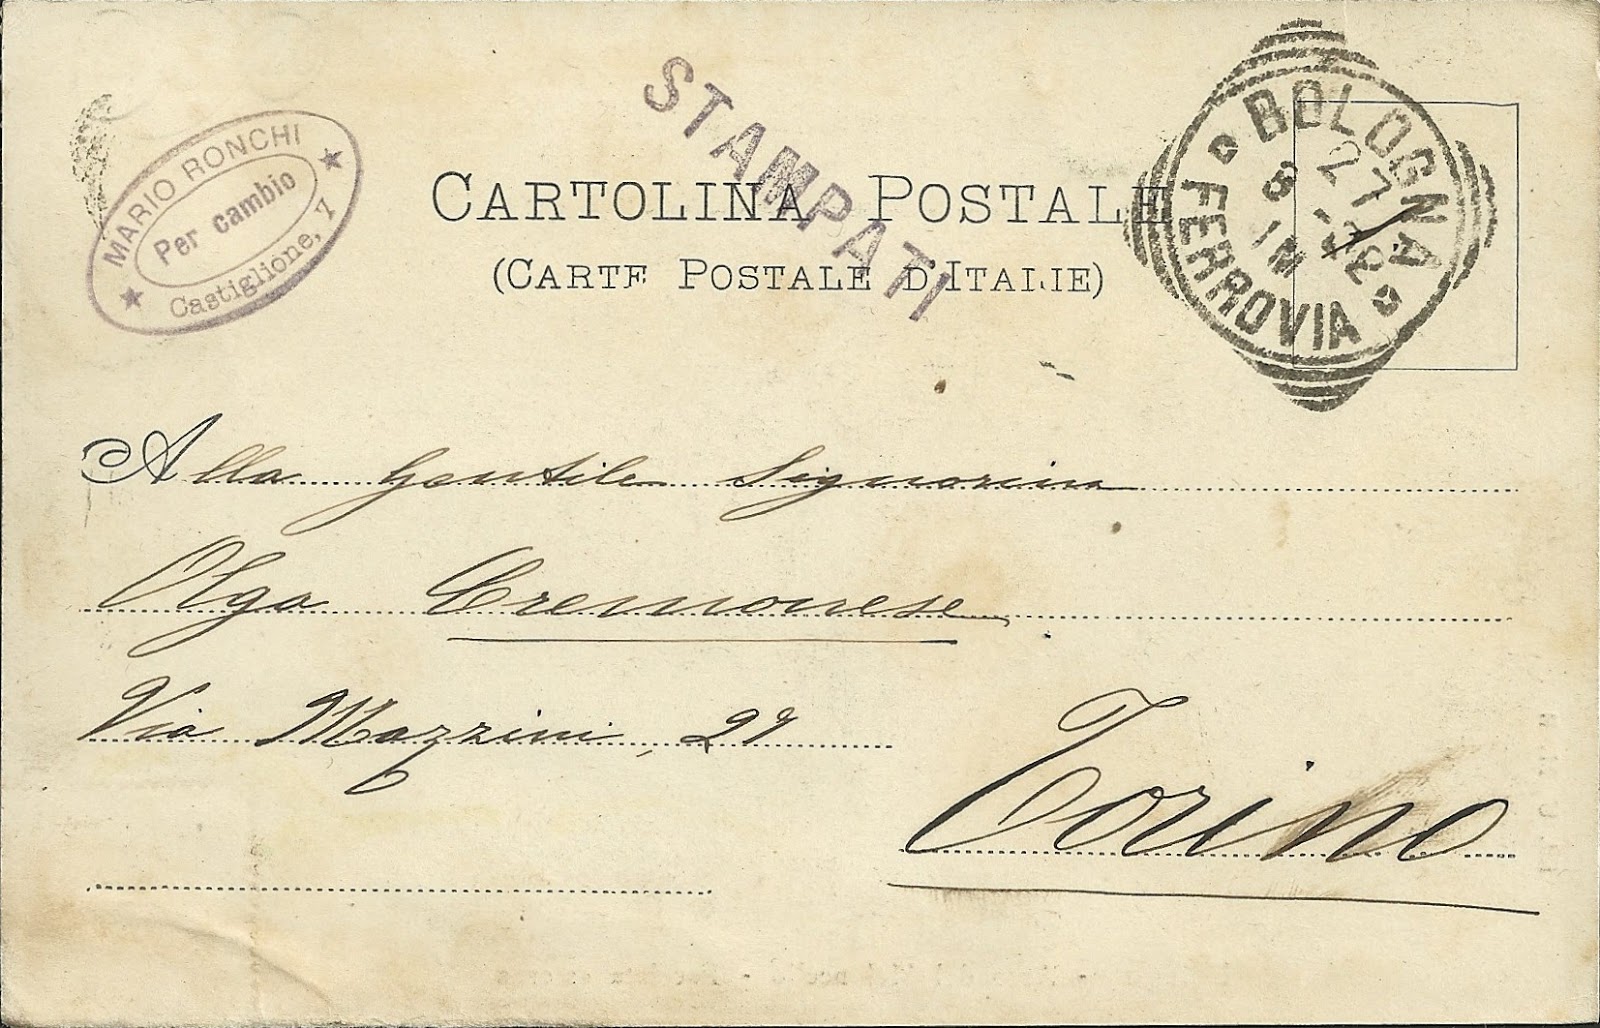 MARIO RONCHI
Per cambio
Castiglione, 7
STAMPATI
CARTOLINA POSTALE
(CARTE POSTALE D'ITALIE)
BOLOGNA
FERROVIA
27
8
Alla Gentile Signorina
Olga Cremonese
Via Mazzini, 27
Torino